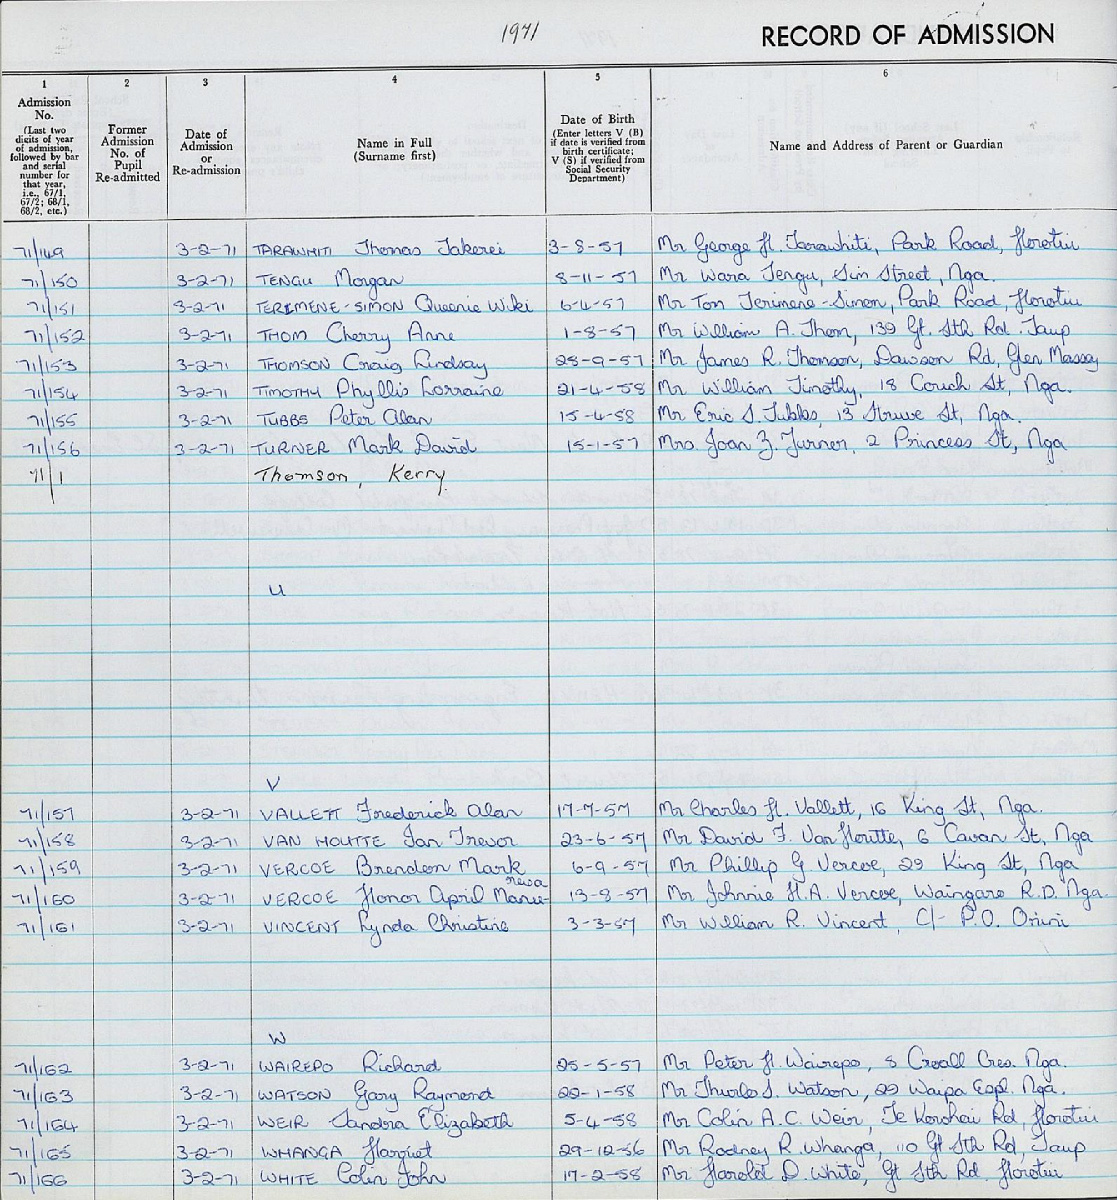 1971 RECORD OF ADMISSION
1 2 3 4 5 6
Admission No. (Last two digits of year of admission, followed by bar and serial number for that year, i.e., 67/1, 67/2; 68/1, 68/2, etc.)
Former Admission No. of Pupil Re-admitted
Date of Admission or Re-admission
Name in Full (Surname first)
Date of Birth (Enter letters V (B) if date is verified from birth certificate; V (S) if verified from Social Security Department)
Name and Address of Parent or Guardian
71/149 3-2-71 TARAWHITI Thomas Takerei 3-8-57 Mr George H. Tarawhiti, Park Road, Horotiu
71/150 3-2-71 TENGU Morgan 8-11-57 Mr Wara Tengu, Sim Street, Nga.
71/151 3-2-71 TERIMENE-SIMON Queenie Wiki 6-4-57 Mr Tom Terimene-Simon, Park Road, Horotiu
71/152 3-2-71 THOM Cherry Anne 1-8-57 Mr William A. Thom, 139 Gt. Sth Rd. Taup
71/153 3-2-71 THOMSON Craig Lindsay 28-9-57 Mr James R. Thomson, Dawson Rd, Glen Massey
71/154 3-2-71 TIMOTHY Phyllis Lorraine 21-4-58 Mr William Timothy, 18 Couch St, Nga.
71/155 3-2-71 TUBBS Peter Alan 15-4-58 Mr Eric S. Tubbs, 13 Struve St, Nga.
71/156 3-2-71 TURNER Mark David 15-1-57 Mrs Joan Z. Turner, 2 Princess St, Nga
71/1 Thomson, Kerry.
U
V
71/157 3-2-71 VALLETT Frederick Alan 17-7-57 Mr Charles H. Vallett, 16 King St, Nga.
71/158 3-2-71 VAN HOUTTE Ian Trevor 23-6-57 Mr David F. Van Houtte, 6 Cavan St, Nga
71/159 3-2-71 VERCOE Brendon Mark 6-9-57 Mr Phillip G Vercoe, 29 King St, Nga
71/160 3-2-71 VERCOE Honor April 13-8-57 Mr Johnnie H.A. Vercoe, Waingaro R.D. Nga.
71/161 3-2-71 VINCENT Lynda Christine 3-3-57 Mr William R. Vincent, C/- P.O. Orini
W
71/162 3-2-71 WAIREPO Richard 25-5-57 Mr Peter H. Wairepo, 8 Croall Cres. Nga.
71/163 3-2-71 WATSON Gary Raymond 22-1-58 Mr Thurlo S. Watson, 29 Waipa Espl. Nga.
71/164 3-2-71 WEIR Sandra Elizabeth 5-4-58 Mr Colin A.C. Weir, Te Kowhai Rd, Horotiu
71/165 3-2-71 WHANGA Harriet 29-12-56 Mr Rodney R. Whanga, 110 Gt Sth Rd, Taup
71/166 3-2-71 WHITE Colin John 17-2-58 Mr Harold D. White, Gt Sth Rd. Horotiu